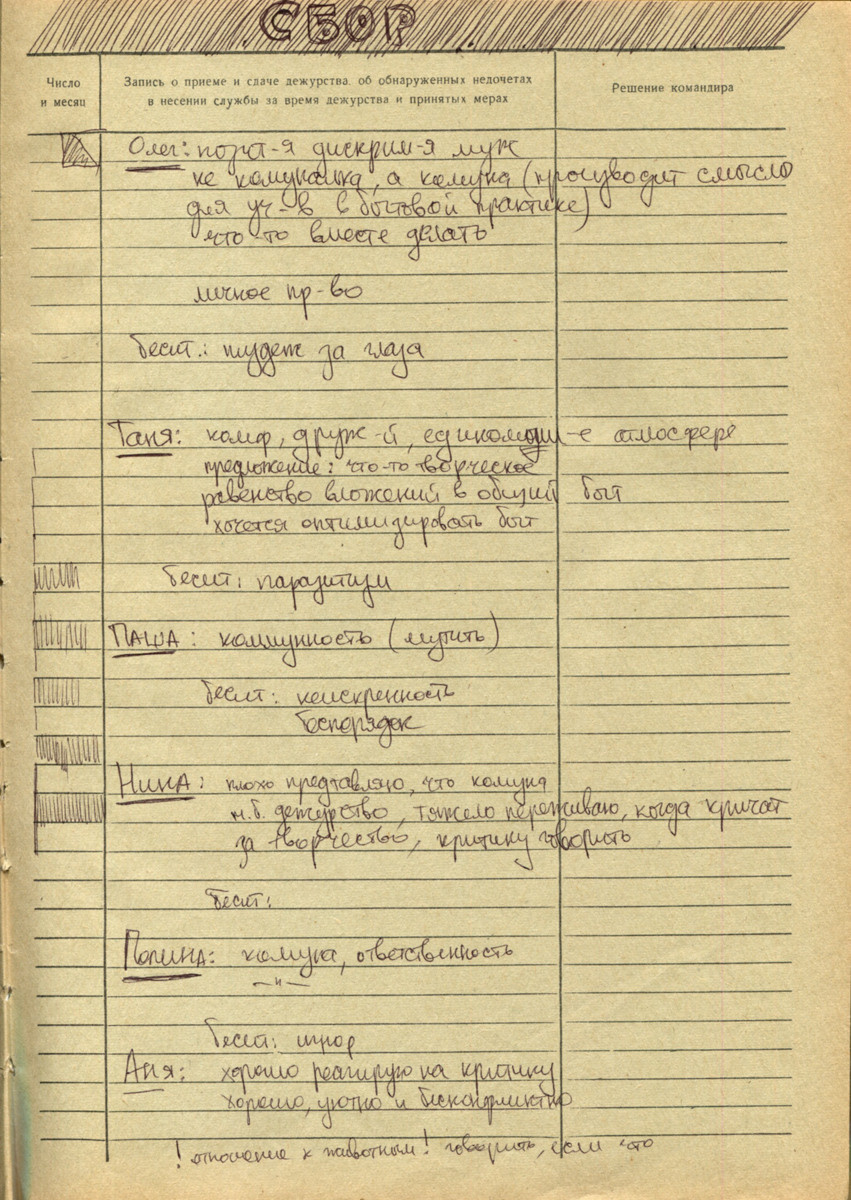 СБОР
Число
и месяц
Запись о приеме и сдаче дежурства, об обнаруженных недочетах
в несении службы за время дежурства и принятых мерах
Решение командира
Олег: позит-я дискрим-я муж
не комуналка, а комуна (производит смыслы
для уч-в в бытовой практике)
что-то вместе делать
личное пр-во
бесит.: пиздеж за глаза
Таня: комф, друж-й, единомыш-е атмосфере
предложение: что-то творческое
равенство вложений в общий быт
хочется оптимизировать быт
бесит: паразитизм
ПАША: коммунность (мутить)
бесит: неискренность
беспорядок
НИНА: плохо предтавляю, что комуна
м.б. дежурство, тяжело переживаю, когда кричат
за творчество, критику говорить
бесит:
ПОЛИНА: комуна, ответственность
—"—
бесит: игнор
Аня: хорошо реагирую на критику
хорошо, уютно и бесконфликтно
! отношение к животным! говорить, если что